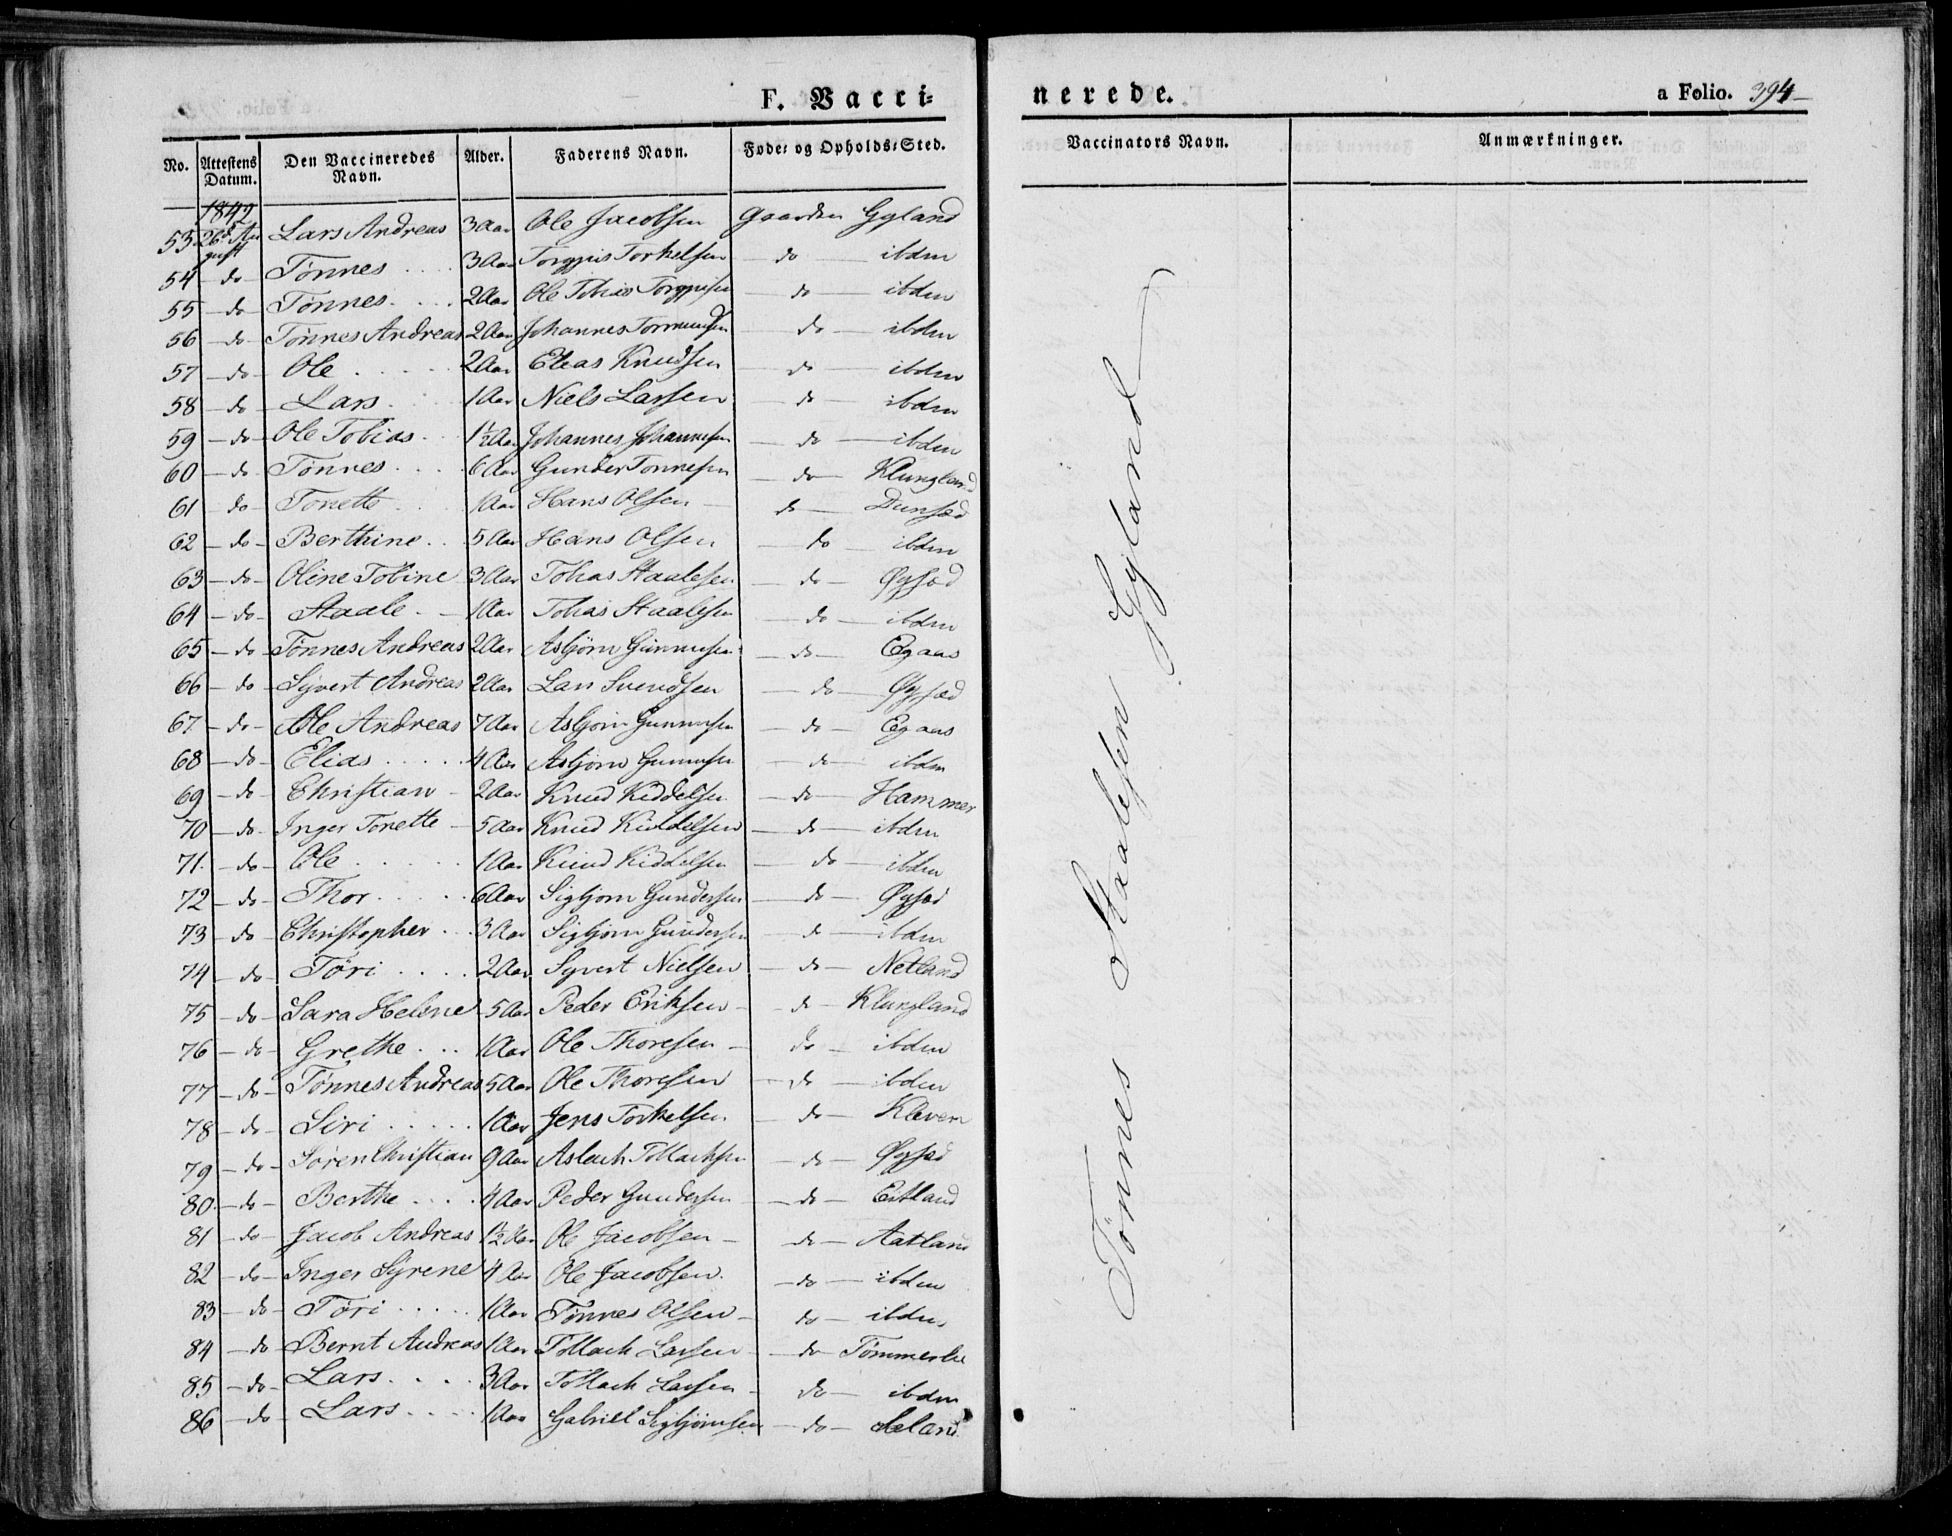 F. Vacci=
nerede.
a Folio. 394
No. Attestens Datum. Den Vaccineredes Navn. Alder. Faderens Navn. Føde= og Opholds=Sted. Vaccinators Navn. Anmærkninger.
1842
53 26d August Lars Andreas 3 Aar Ole Jacobsen Gaarden Gyland
54 do Tønnes 3 Aar Torgjus Torkelsen do ibdm
55 do Tønnes 2 Aar Ole Tobias do ibdm
56 do Tønnes Andreas 2 Aar Johannes do ibdm
57 do Ole 2 Aar Elias Knudsen do ibdm
58 do Lars 1 Aar Niels Larsen do ibdm
59 do Ole Tobias 1½ Aar Johannes Johannesen do ibdm
60 do Tønnes 6 Aar Gunder Tønnesen do Klungland
61 do Tonette 1 Aar Hans Olsen do Dunsæd
62 do Berthine 5 Aar Hans Olsen do ibdm
63 do Oline Tobine 3 Aar Tobias Staalesen do Øysæd
64 do Staale 1 Aar Tobias Staalesen do ibdm
65 do Tønnes Andreas 2 Aar Asbjörn Gunnersen do Egaas
66 do Syvert Andreas 2 Aar Lars Svendsen do Øysæd
67 do Ole Andreas 7 Aar Asbjörn Gunnersen do Egaas
68 do Elias 4 Aar Asbjörn Gunnersen do ibdm
69 do Christian 2 Aar Knud Kiddelsen do Hammer
70 do Inger Tonette 5 Aar Knud Kiddelsen do ibdm
71. do Ole 1 Aar Knud Kiddelsen do ibdm
72 do Thor 6 Aar Sigbjörn Gundersen do Øysæd
73 do Christopher 3 Aar Sigbjörn Gundersen do ibdm
74 do Töri 2 Aar Syvert Nielsen do Netland
75 do Sara Helene 5 Aar Peder Eriksen do Klungland
76 do Grethe 1 Aar Ole Thoresen do ibdm
77 do Tønnes Andreas 5 Aar Ole Thoresen do ibdm
78 do Siri 1 Aar Jens Torkelsen do Kleven
79 do Søren Christian 9 Aar Aslach Tollachsen do Øysæd
80 do Berthe 4 Aar Peder Gundersen do Eitland
81 do Jacob Andreas 1½ Aar Ole Jacobsen do Aatland
82 do Inger Syrene 4 Aar Ole Jacobsen do ibdm
83 do Töri 1 Aar Tønnes Olsen do ibdm
84 do Bernt Andreas 1 Aar Tollach Larsen do Tömmerlie
85 do Lars 3 Aar Tollach Larsen do ibdm
86 do Lars 1 Aar Gabriel Sigbjørnsen do Seland
Tønnes Staalesen Gyland